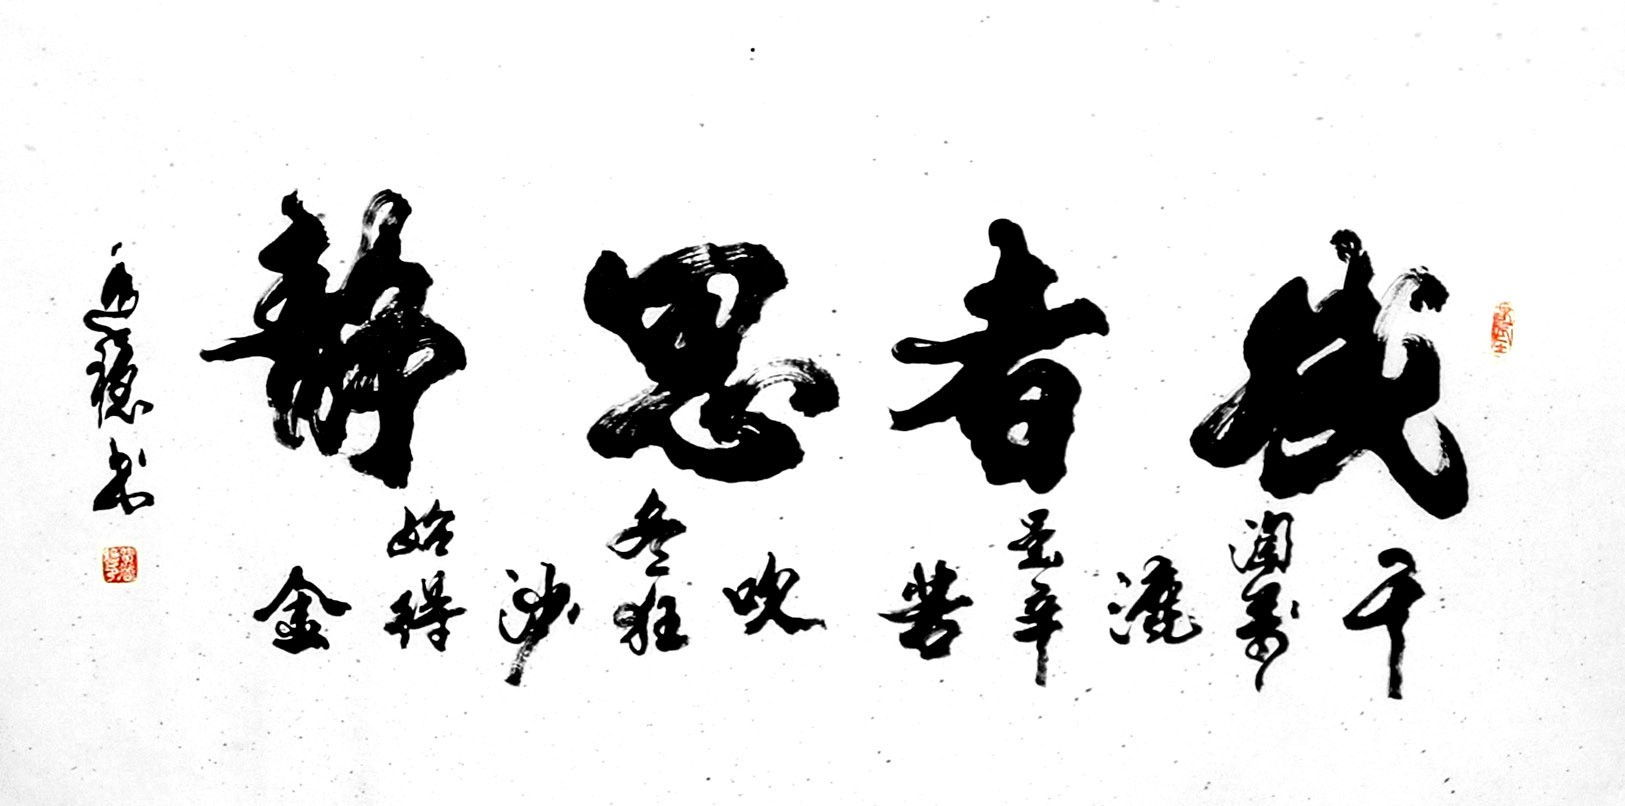 者思静
千淘萬漉虽辛苦
吹尽狂沙始得金
书